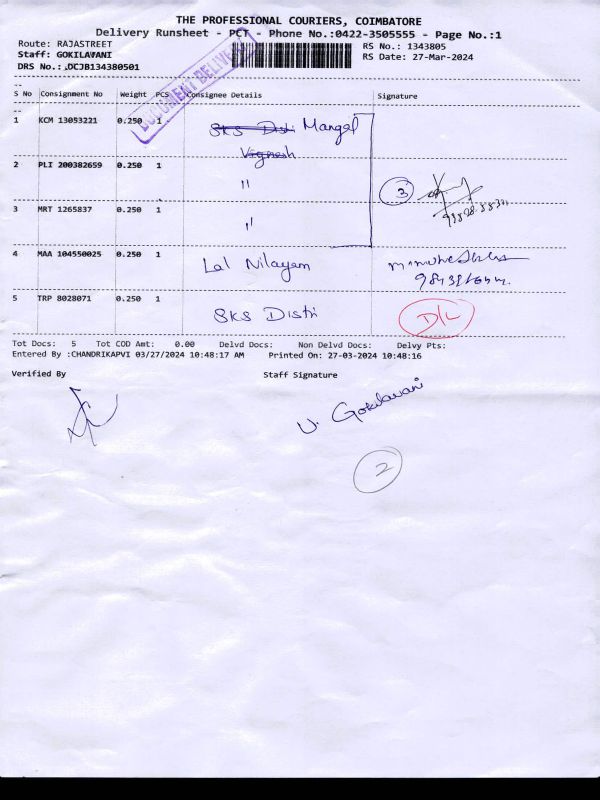 THE PROFESSIONAL COURIERS, COIMBATORE
Delivery Runsheet - PCT - Phone No.:0422-3505555 - Page No.:1
Route: RAJASTREET
RS No.: 1343805
Staff: GOKILAVANI
RS Date: 27-Mar-2024
DRS No.: DCJB134380501
DOCUMENT DELIVE
S No Consignment No Weight PCS Consignee Details Signature
1 KCM 13053221 0.250 1 SKS Distri Mangal
Vignesh
2 PLI 200382659 0.250 1 "
3
3 MRT 1265837 0.250 1 "
4 MAA 104550025 0.250 1 Lal Nilayam
5 TRP 8028071 0.250 1 SKS Distri D/L
Tot Docs: 5 Tot COD Amt: 0.00 Delvd Docs: Non Delvd Docs: Delvy Pts:
Entered By :CHANDRIKAPVI 03/27/2024 10:48:17 AM Printed On: 27-03-2024 10:48:16
Verified By Staff Signature
V. Gokilavani
2